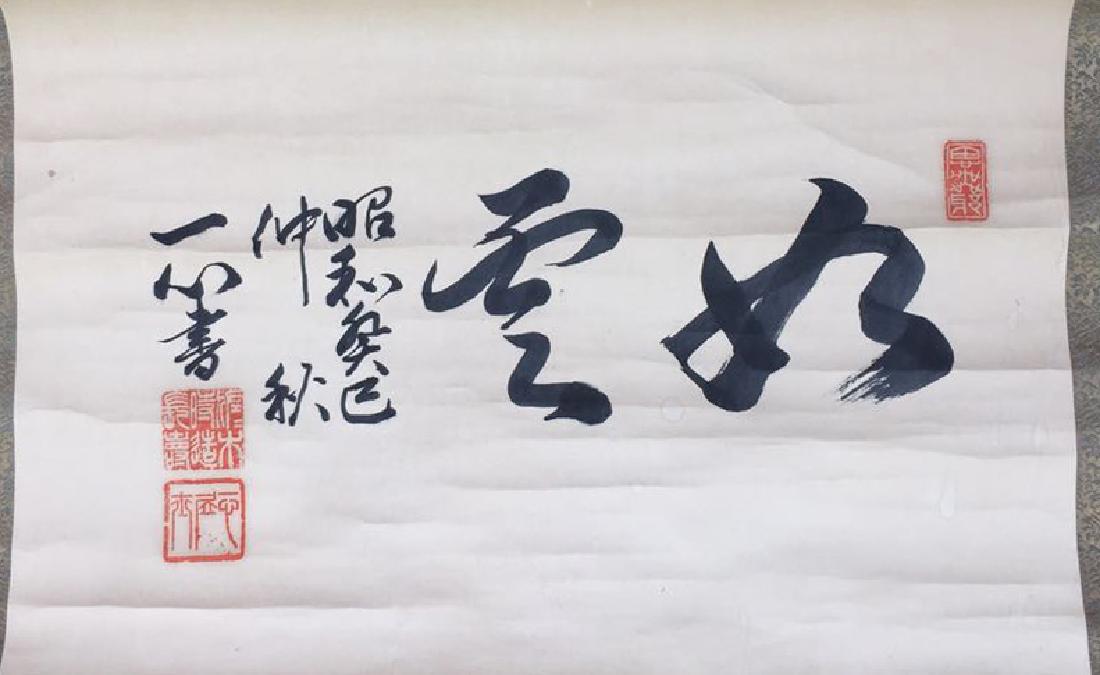 如雲
昭和癸巳
仲秋
一心書